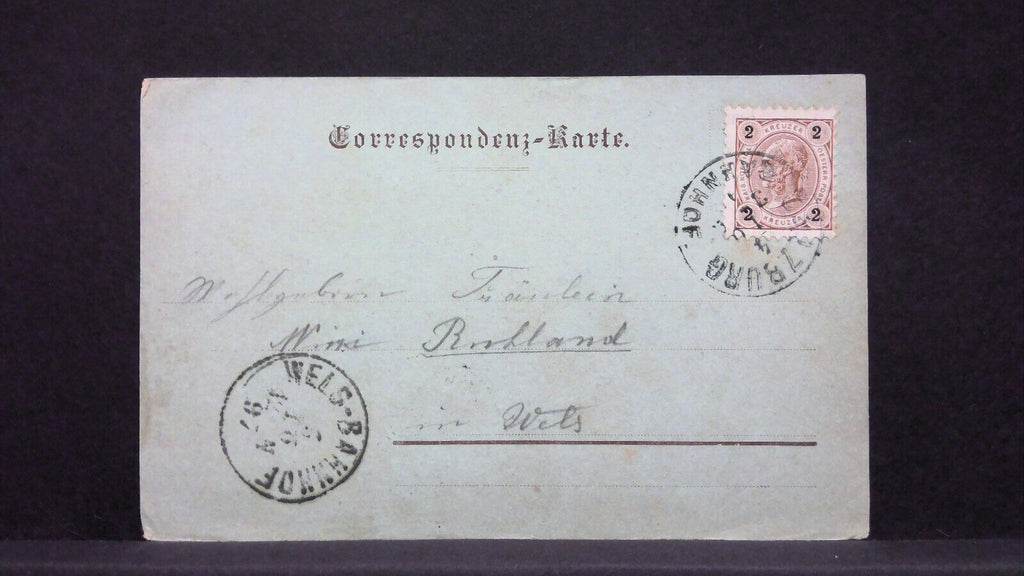 Correspondenz-Karte.
2 KREUZER 2
2 KREUZER 2
SALZBURG BAHNHOF
Wohlgeboren Fräulein
Mini
in Wels
WELS-BAHNHOF